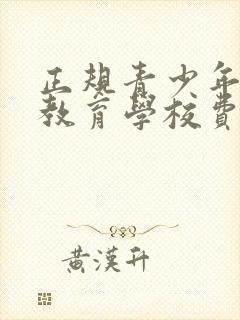 正規青少年
教育學校費
黃漢升